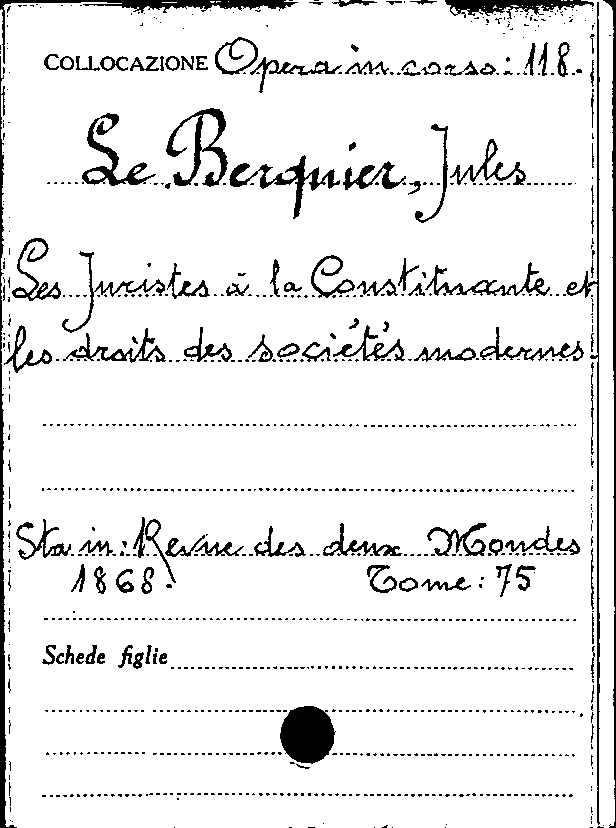 COLLOCAZIONE Opera in corso: 118.
Le Berquier, Jules
Les Juristes à la Constituante et
les droits des sociétés modernes.
Sta in: Revue des deux Mondes
1868. Tome: 75
Schede figlie